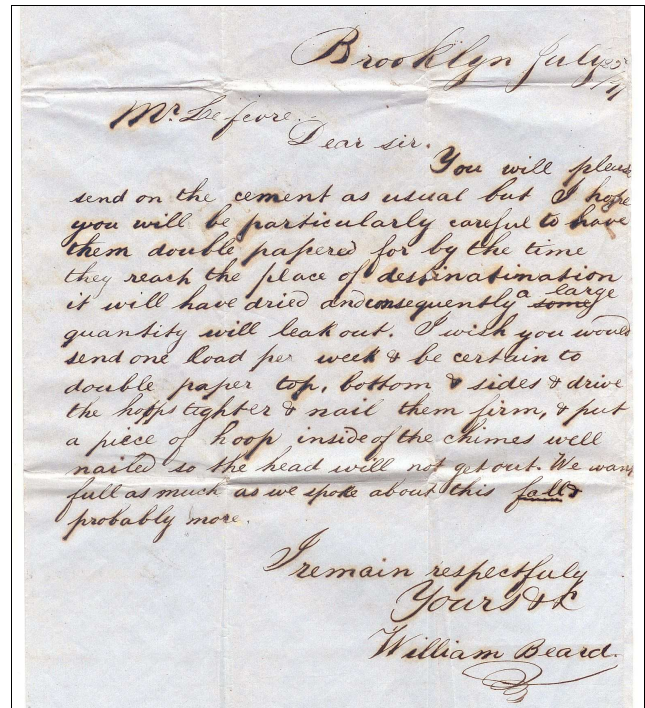 Brooklyn July
Mr. Lefevre.
Dear sir.
You will please
send on the cement as usual but I hope
you will be particularly careful to have
them double papered for by the time
they reach the place of destinatimation
it will have dried and consequently a large
some
quantity will leak out. I wish you would
send one load per week & be certain to
double paper top, bottom & sides & drive
the hoops tighter & nail them firm, & put
a piece of hoop inside of the chimes well
nailed so the head will not get out. We want
full as much as we spoke about this fall &
probably more.
I remain respectfuly
Yours &c
William Beard.